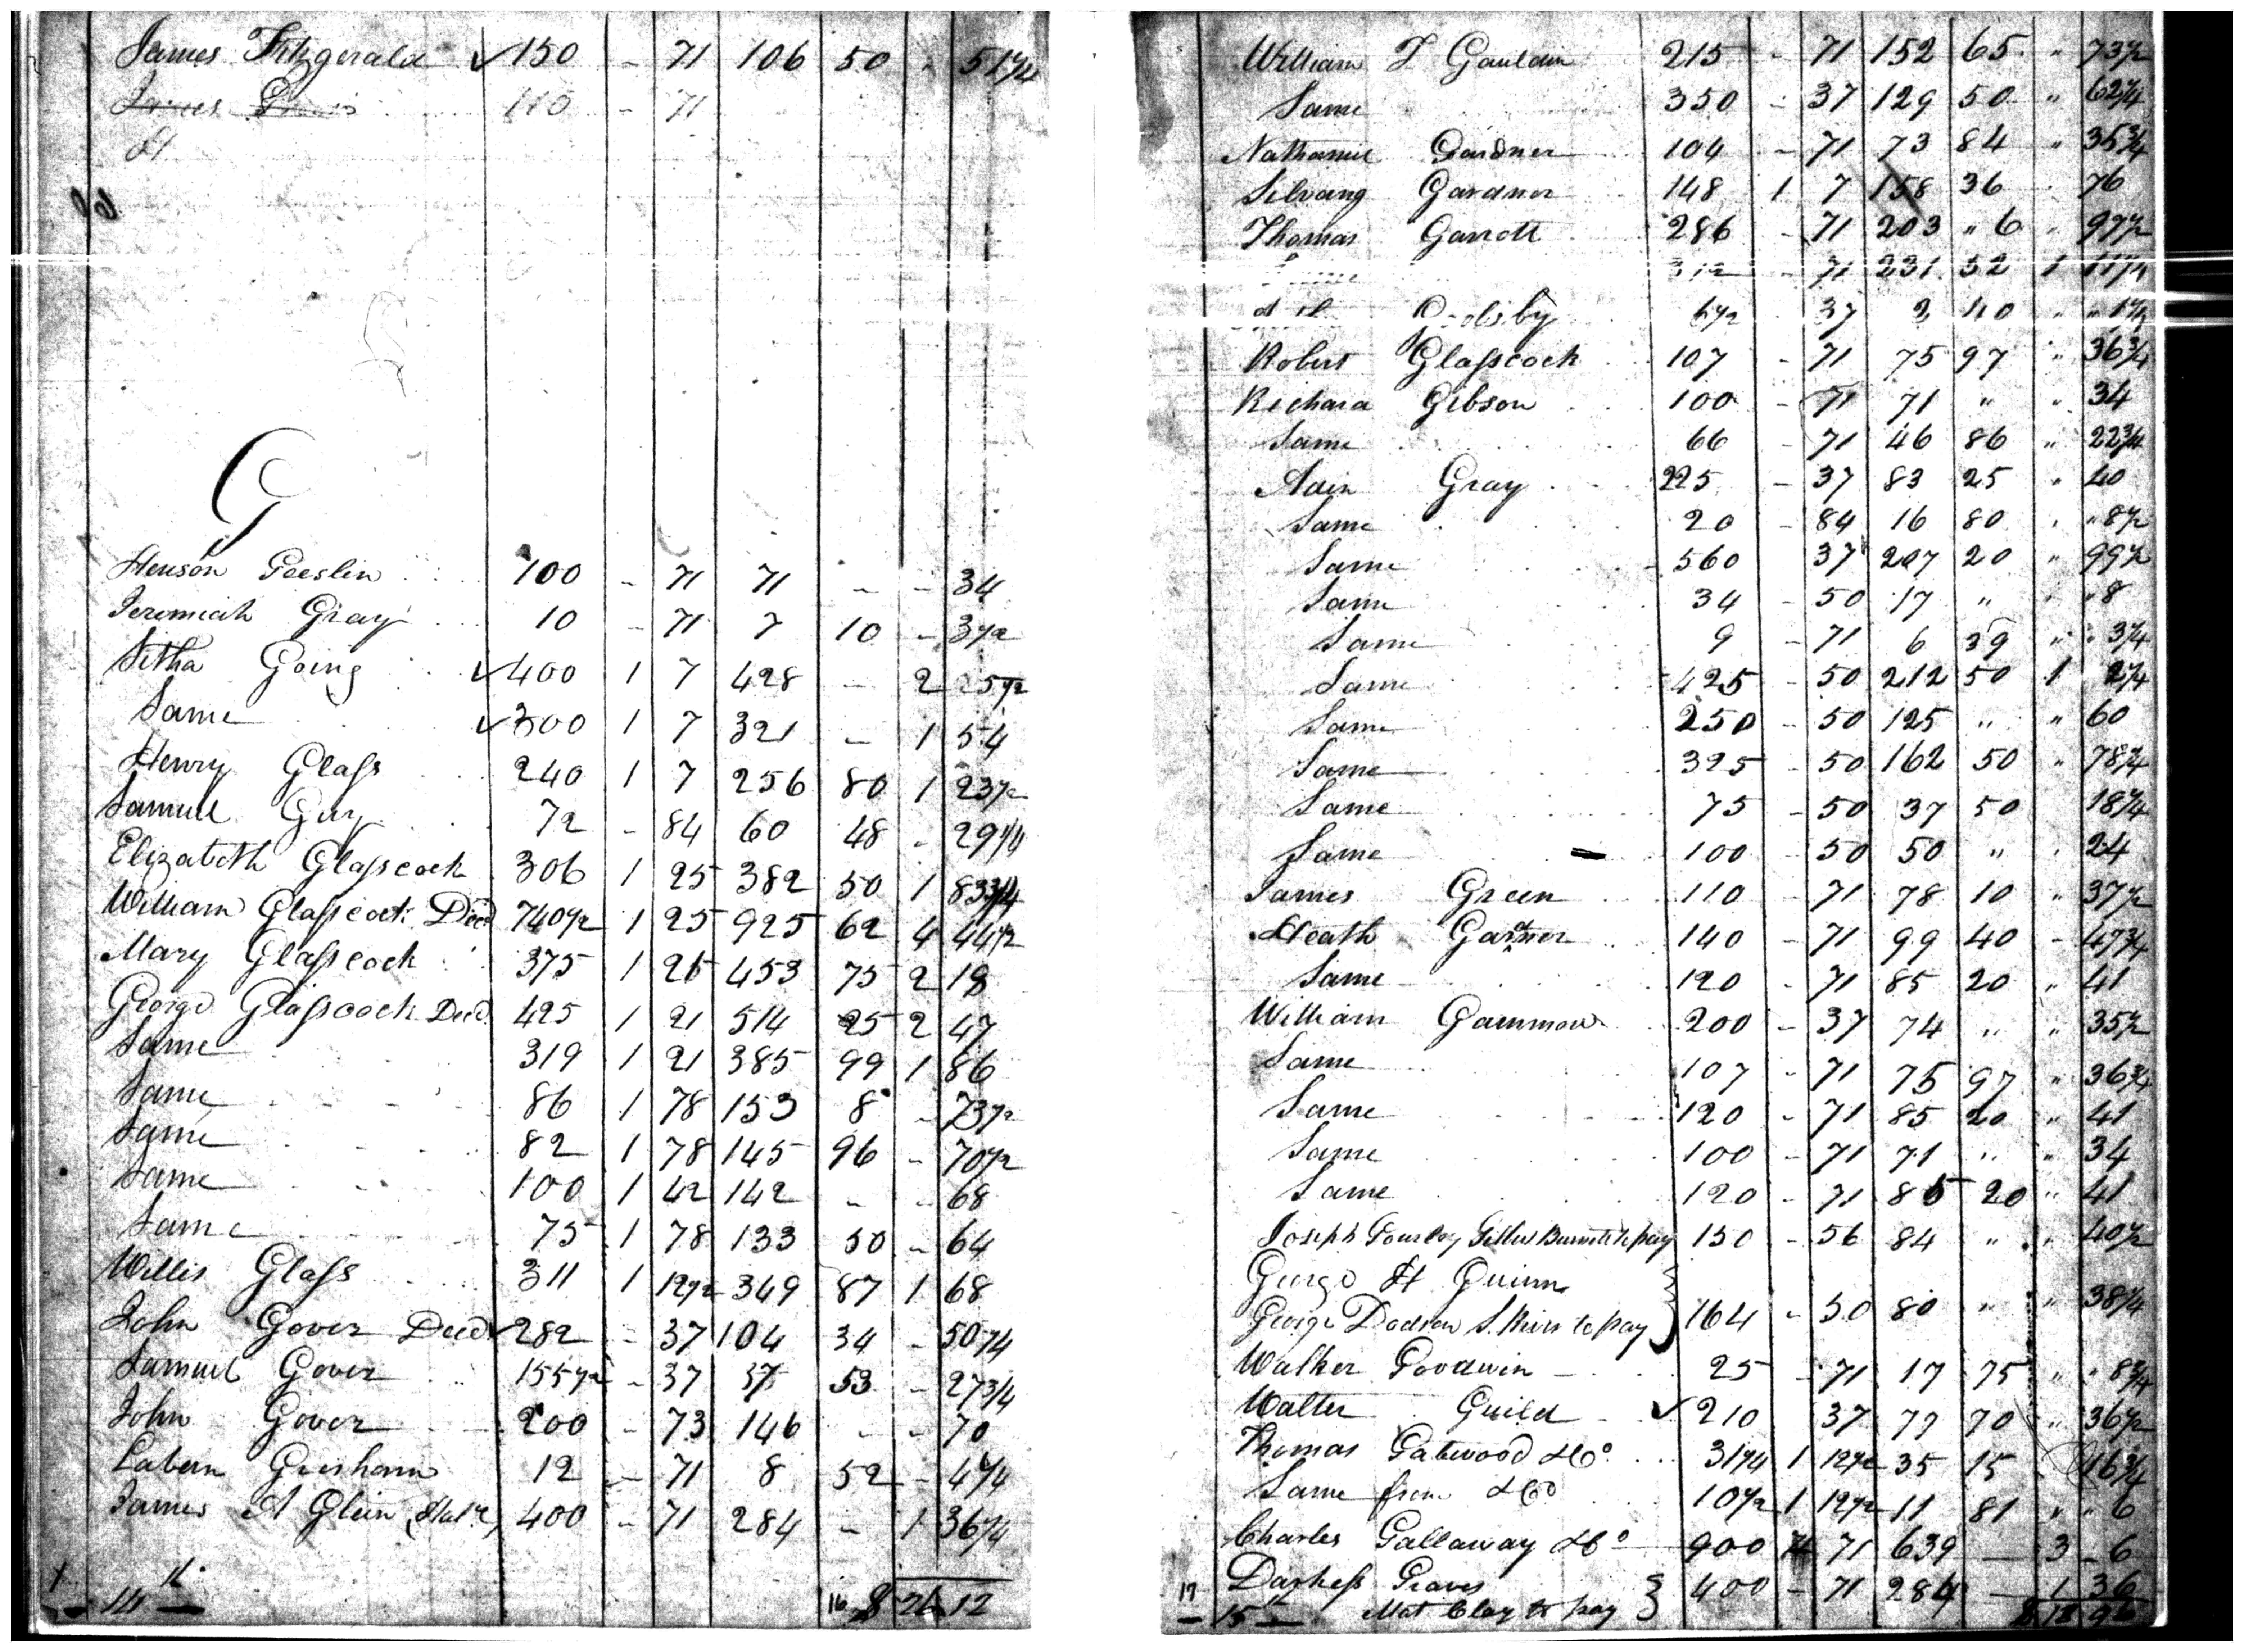 James Fitzgerald ✓ 150 - 71 106 50 " 51 1/4
James 110 - 71
G
Henson Geeslin 100 - 71 71 - - 34
Jeremiah Gray 10 - 71 7 10 - 3 1/2
Sitha Going ✓ 400 1 7 428 - 2 5 1/2
Same ✓ 300 1 7 321 - 1 54
Henry Glass 240 1 7 256 80 1 23 1/2
Samuel Guy 72 - 84 60 48 - 29 1/4
Elizabeth Glasscock 306 1 25 382 50 1 83 3/4
William Glasscock Decd 740 1/2 1 25 925 62 4 44 1/2
Mary Glasscock 375 1 21 453 75 2 18
George Glasscock Decd. 425 1 21 514 25 2 47
Same 319 1 21 385 99 1 86
Same 86 1 78 153 8 - 73 1/2
Same 82 1 78 145 96 - 70 1/2
Same 100 1 42 142 - - 68
Same 75 1 78 133 50 - 64
Willis Glass 311 1 12 1/2 349 87 1 68
John Gover Decd ✓ 282 - 37 104 34 - 50 1/4
Samuel Gover 155 1/2 - 37 57 53 - 27 3/4
John Gover 200 - 73 146 - - 70
Labern Gresham 12 - 71 8 52 - 4 1/4
James A Glenn 400 - 71 284 - 1 36 1/4
14 16 8 26 12
William T Gauldin 215 - 71 152 65 " 73 1/2
Same 350 - 37 129 50 " 62 1/4
Nathaniel Gardner 104 - 71 73 84 " 35 3/4
Silvang Gardner 148 1 7 158 36 . 76
Thomas Garrott 286 - 71 203 " 6 " 97 1/2
Same 312 - 71 221 52 1 11 1/4
6 1/2 37 2 40 " " 1 1/4
Robert Glasscock 107 - 71 75 97 " 36 3/4
Richard Gibson 100 - 71 71 " " 34
Same 66 - 71 46 86 " 22 3/4
Adin Gray 225 - 37 83 25 " 40
Same 20 - 84 16 80 " " 8 1/2
Same 560 37 207 20 " 99 1/2
Same 34 - 50 17 " " " 8
Same 9 - 71 6 39 " " 3 1/4
Same 425 - 50 212 50 1 2 1/4
Same 250 - 50 125 " " 60
Same 325 - 50 162 50 " 78 1/4
Same 75 - 50 37 50 18 1/4
Same 100 - 50 50 " " 24
James Green 110 - 71 78 10 " 37 1/2
Heath Gardner 140 - 71 99 40 - 47 3/4
Same 120 - 71 85 20 " 41
William Gammon 200 - 37 74 " " 35 1/2
Same 107 - 71 75 97 " 36 3/4
Same 120 - 71 85 20 " 41
Same 100 - 71 71 " " 34
Same 120 - 71 85 20 " 41
Joseph Gourley to pay 150 - 56 84 " " 40 1/2
George H Guinn
George Dodson to pay } 164 - 50 80 " " 38 1/4
Walker Goodwin 25 - 71 17 75 " " 8 3/4
Walter Guild ✓ 210 37 77 70 " 36 1/2
Thomas Gatewood &Co. 31 1/4 1 12 1/2 35 15 16 3/4
Same from &Co 10 1/2 1 12 1/2 11 81 " " 6
Charles Gallaway &Co 900 71 639 - 3 - 6
Darkess Graves } 400 - 71 284 - 1 36
17 15 Mat Clay to pay